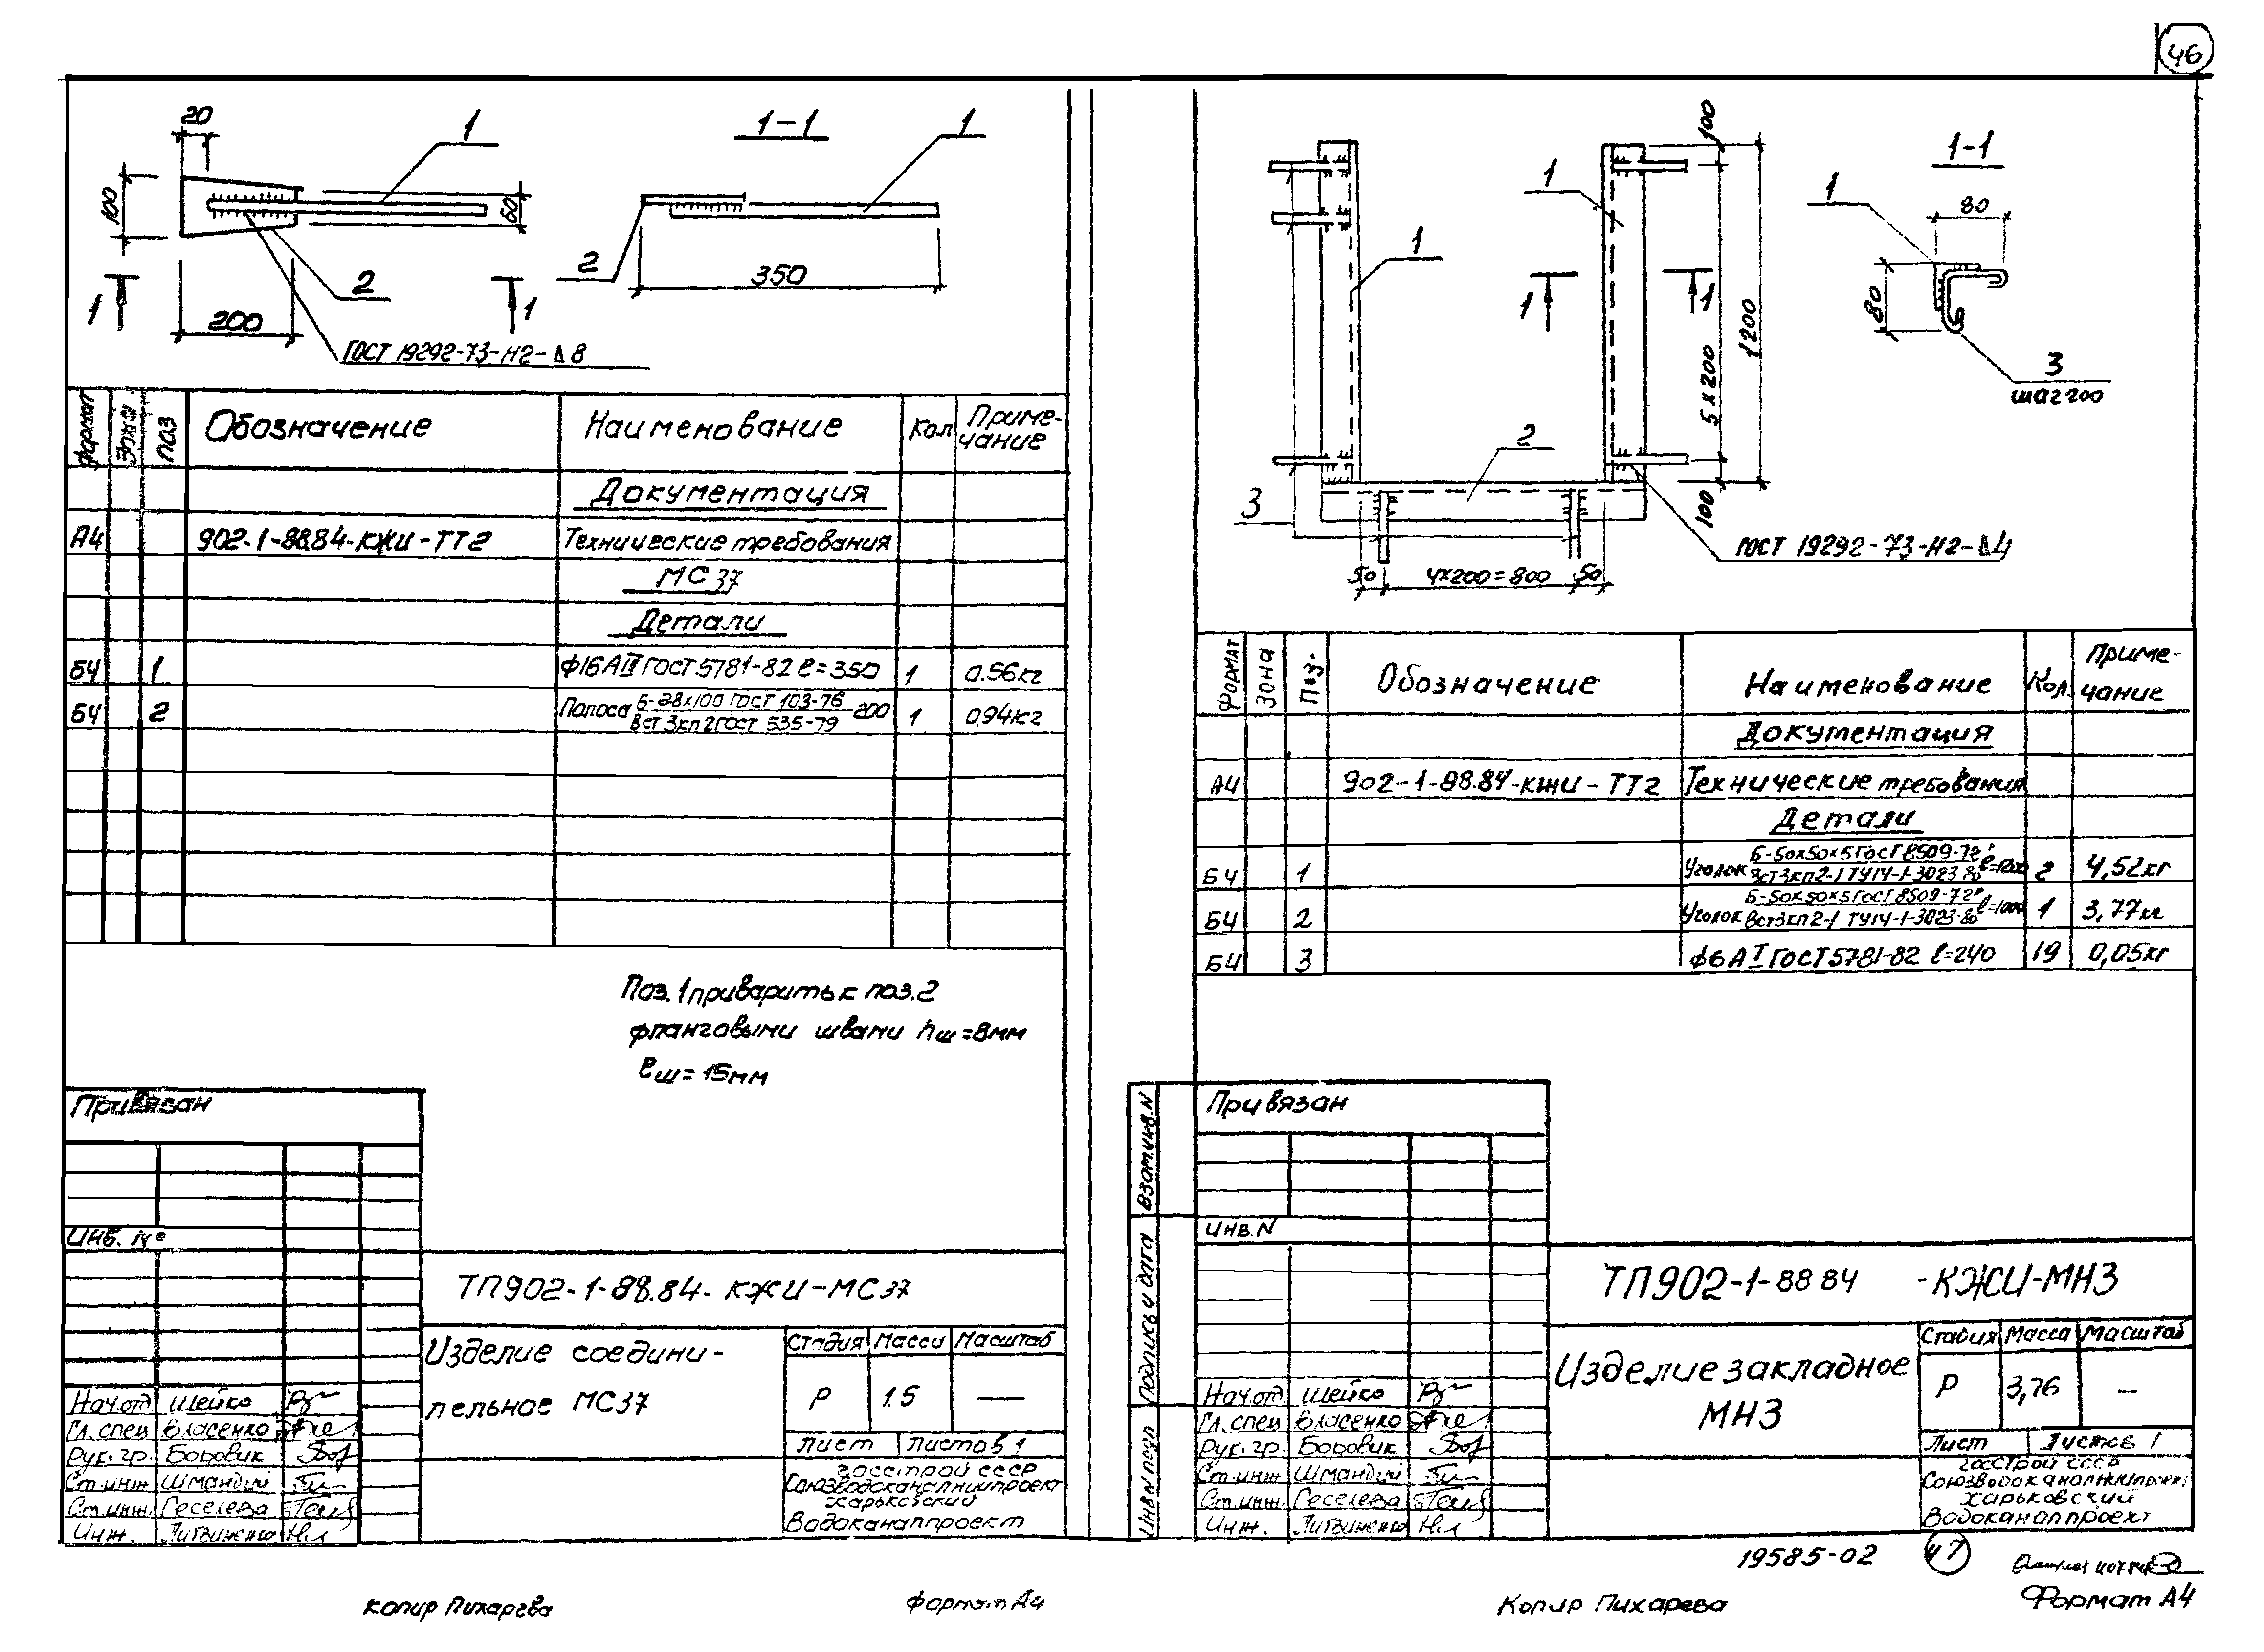 46
20
1
1-1
1
100
60
2
2
350
1
1
200
ГОСТ 19292-73-Н2-Δ8
Формат
Зона
Поз
Обозначение
Наименование
Кол
Приме-
чание
Документация
А4 902-1-88.84-КЖИ-ТТ2 Технические требования
МС 37
Детали
Б4 1 ф16АIII ГОСТ 5781-82 ℓ=350 1 0.56кг
Б4 2 Полоса Б-8х100 ГОСТ 103-76 200 1 0,94кг
Вст3кп2 ГОСТ 535-79
Поз. 1 приварить к поз. 2
фланговыми швами hш=8мм
ℓш=15мм
Привязан
Инв. №
ТП902-1-88.84-КЖИ-МС37
Изделие соедини-
тельное МС37
Стадия Масса Масштаб
Р 1.5 —
Лист Листов 1
Госстрой СССР
Союзводоканалниипроект
Харьковский
Водоканалпроект
Нач.отд. Шейко
Гл. спец Власенко
Рук. гр. Боровик
Ст.инж Шмандий
Ст.инж. Геселева
Инж. Литвиненко
Копир Пихарева
Формат А4
100
1
1
1-1
1
80
80
1
1
5х200
1200
3
шаг 200
2
3
100
ГОСТ 19292-73-Н2-Δ4
50 4х200=800 50
Формат
Зона
Поз.
Обозначение
Наименование
Кол.
Приме-
чание
Документация
А4 902-1-88.84-КЖИ-ТТ2 Технические требования
Детали
Б4 1 Уголок Б-50х50х5 ГОСТ 8509-72 ℓ=1200 2 4,52кг
Вст3кп2-1 ТУ14-1-3023-80
Б4 2 Уголок Б-50х50х5 ГОСТ 8509-72 ℓ=1000 1 3,77кг
Вст3кп2-1 ТУ14-1-3023-80
Б4 3 ф6АI ГОСТ 5781-82 ℓ=240 19 0,05кг
Взам.инв.N
Подпись и дата
Инв N подл
Привязан
Инв. N
ТП902-1-88 84 -КЖИ-МН3
Изделие закладное
МН3
Стадия Масса Масштаб
Р 3,76 —
Лист Листов 1
Госстрой СССР
Союзводоканалниипроект
Харьковский
Водоканалпроект
Нач.отд Шейко
Гл. спец Власенко
Рук. гр. Боровик
Ст.инж Шмандий
Ст.инж. Геселева
Инж. Литвиненко
19585-02
47
Копир Пихарева
Формат А4